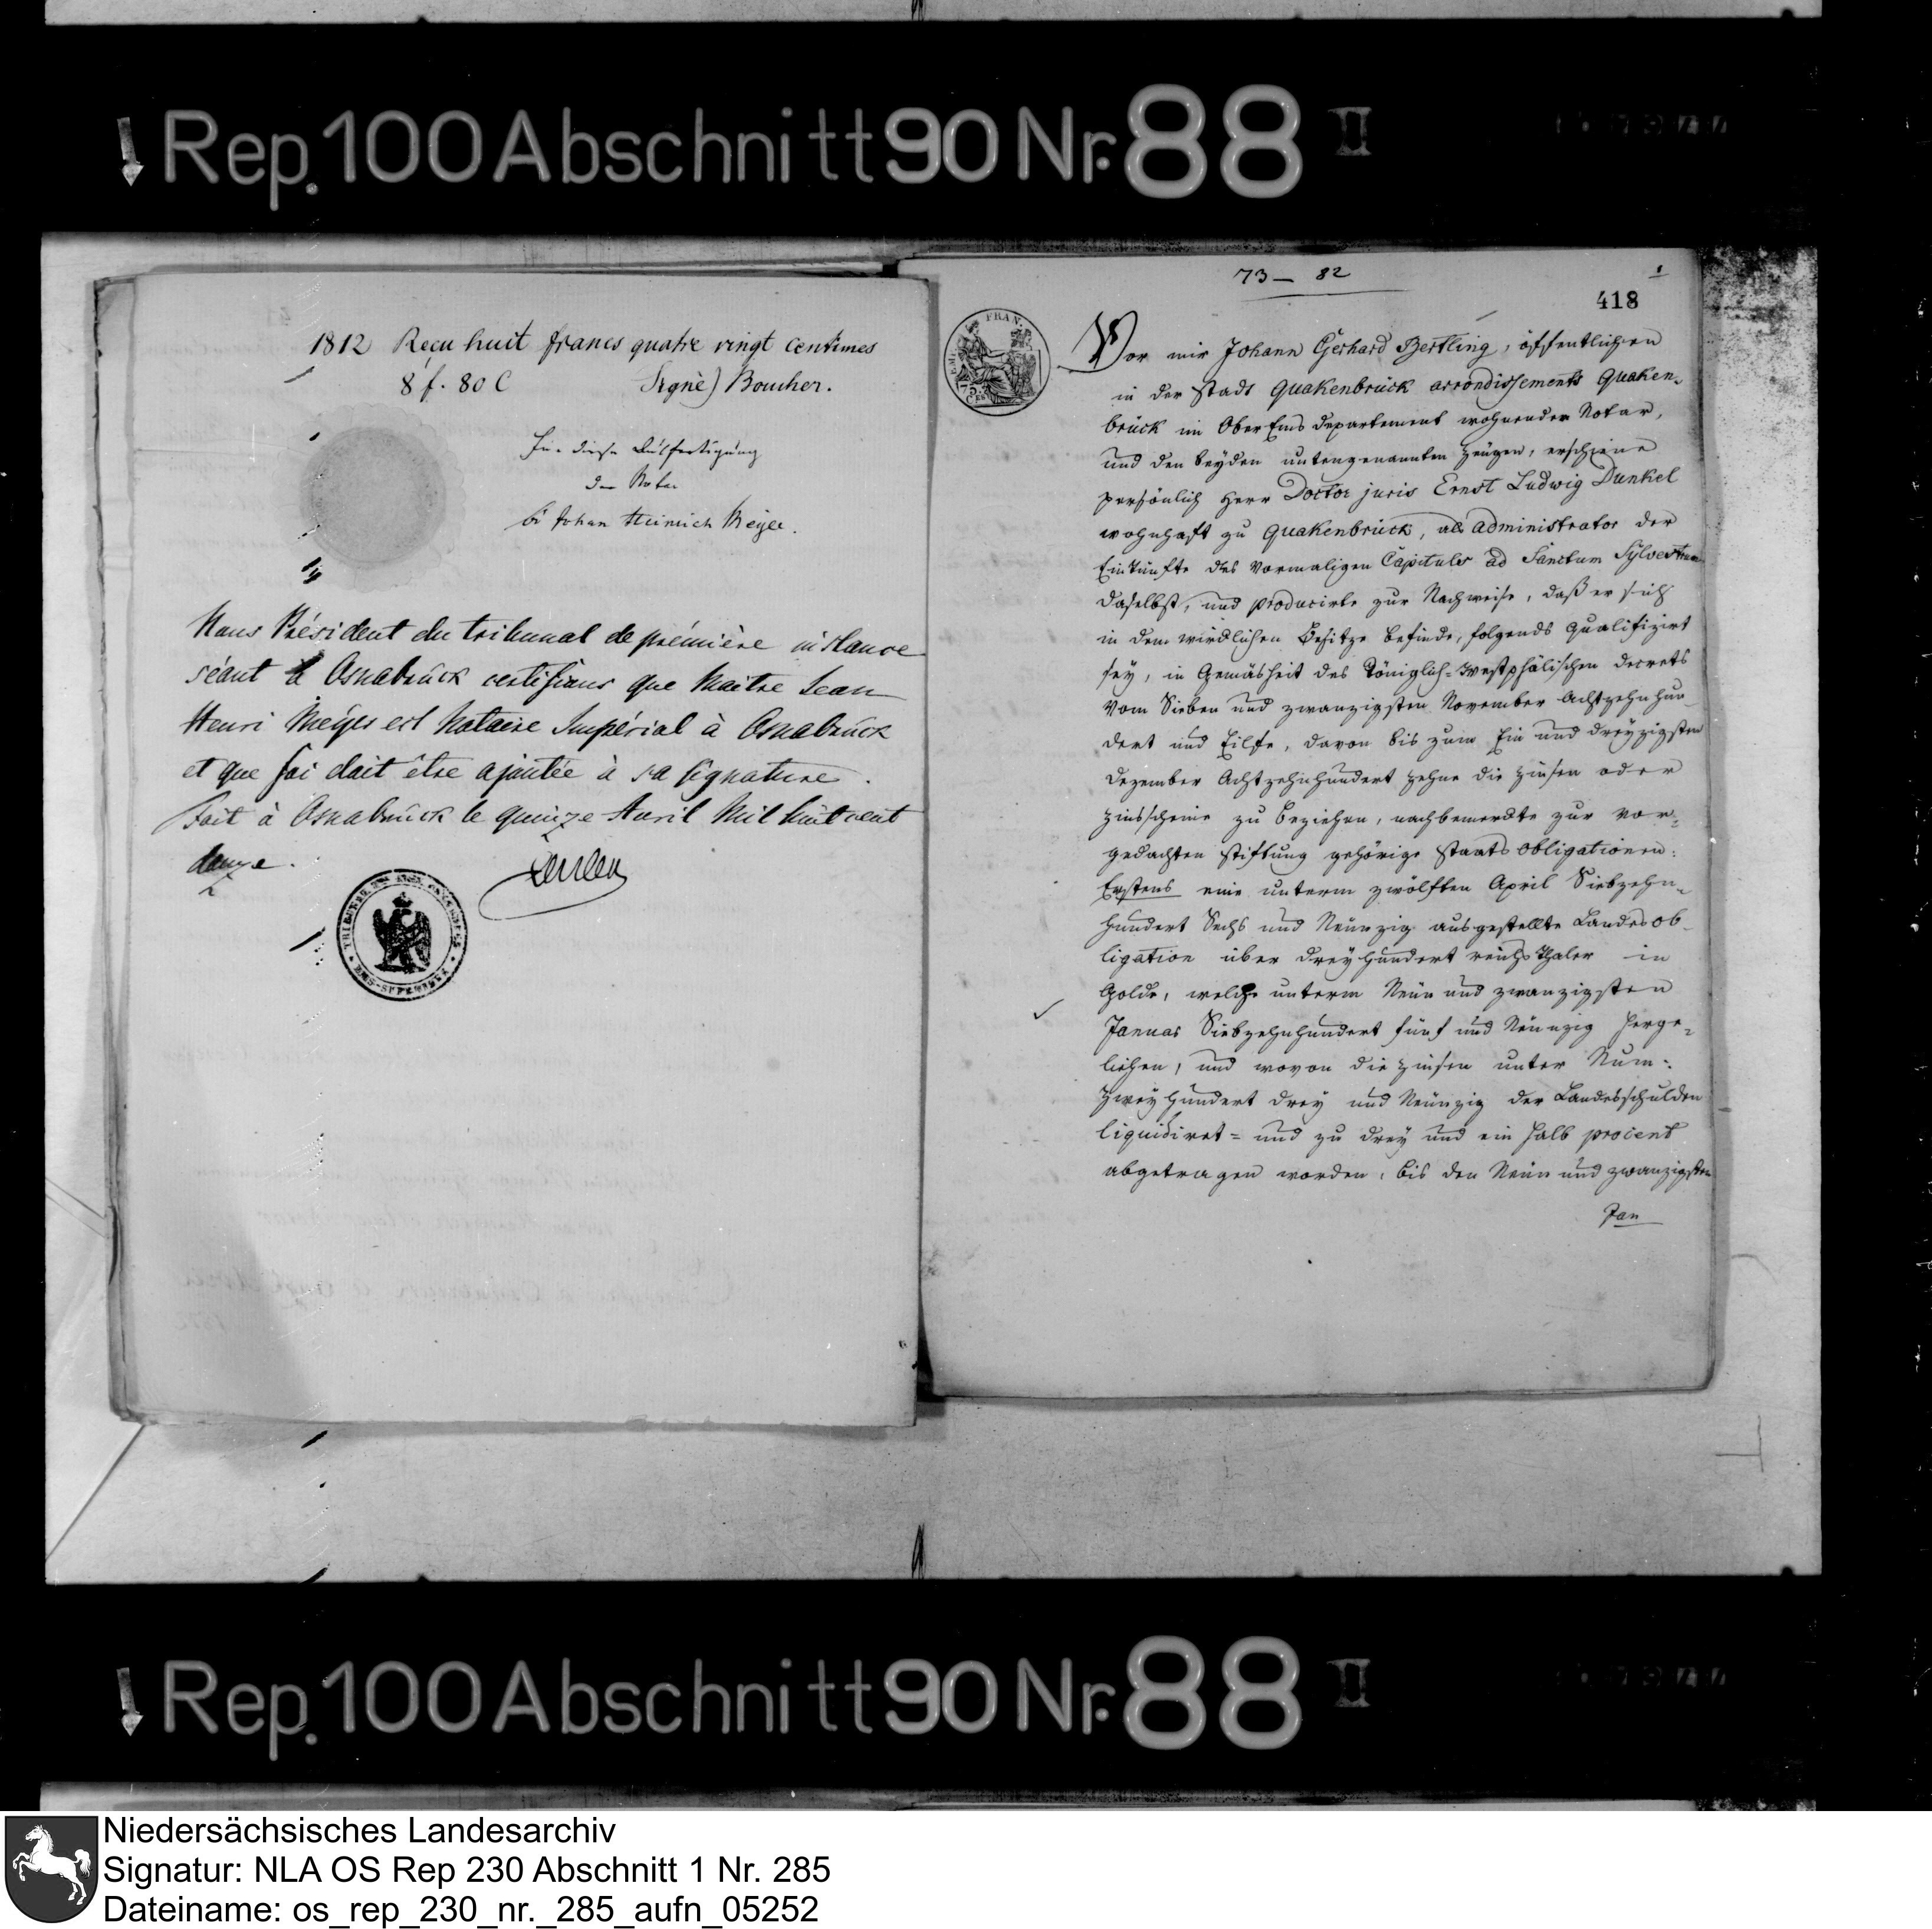 Rep. 100 Abschnitt 90 Nr. 88 II
1812 Recu huit francs quatre vingt centimes
8 f. 80 C Signé) Boucher.
Für diese Ausfertigung
der Notar
Johan Heinrich Meyer.
Nous Président du tribunal de prémière instance
séant à Osnabrück certifions que Maitre Jean
Henri Meyer est Notaire Impérial à Osnabrück
et que foi doit être ajoutée à sa signature.
Fait à Osnabrück le quinze Avril Mil huit cent
douze.
73 – 82
418
FRAN.
75
Vor mir Johann Gerhard Bertling, öffentlichen
in der Stadt Quakenbrück arrondissements Quaken-
brück im OberEms departement wohnenden Notar,
und den beyden untengenannten Zeugen, erschiene
persönlich Herr Doctor juris Ernst Ludwig Dunkel
wohnhaft zu Quakenbrück, als administrator der
Einkünfte des vormaligen Capituls ad Sanctum Sylvestrum
daselbst, und producirte zur Nachweise, daß er sich
in dem wircklichen Besitze befinde, folgends qualifizirt
sey, in Gemäsheit des Königlich-Westphälischen decrets
vom Sieben und zwanzigsten November Achtzehnhun-
dert und Eilfe, davon bis zum Ein und dreyzigsten
Dezember Achtzehnhundert zehne die Zinsen oder
Zinsscheine zu beziehen, nachbemerckte zur vor-
gedachten Stiftung gehörige Staats obligationen:
Erstens eine unterm zwölften April Siebzehn-
hundert Sechs und Neunzig ausgestellte Landesob-
ligation über dreyhundert reichsThaler in
Golde, welche unterm Neun und zwanzigsten
Januar Siebzehnhundert fünf und Neunzig herge-
liehen, und wovon die Zinsen unter Num:
zweyhundert drey und Neunzig der Landesschulden
liquidiret- und zu drey und ein halb procent
abgetragen worden, bis den Neun und zwanzigsten
Jan
Rep. 100 Abschnitt 90 Nr. 88 II
Niedersächsisches Landesarchiv
Signatur: NLA OS Rep 230 Abschnitt 1 Nr. 285
Dateiname: os_rep_230_nr._285_aufn_05252